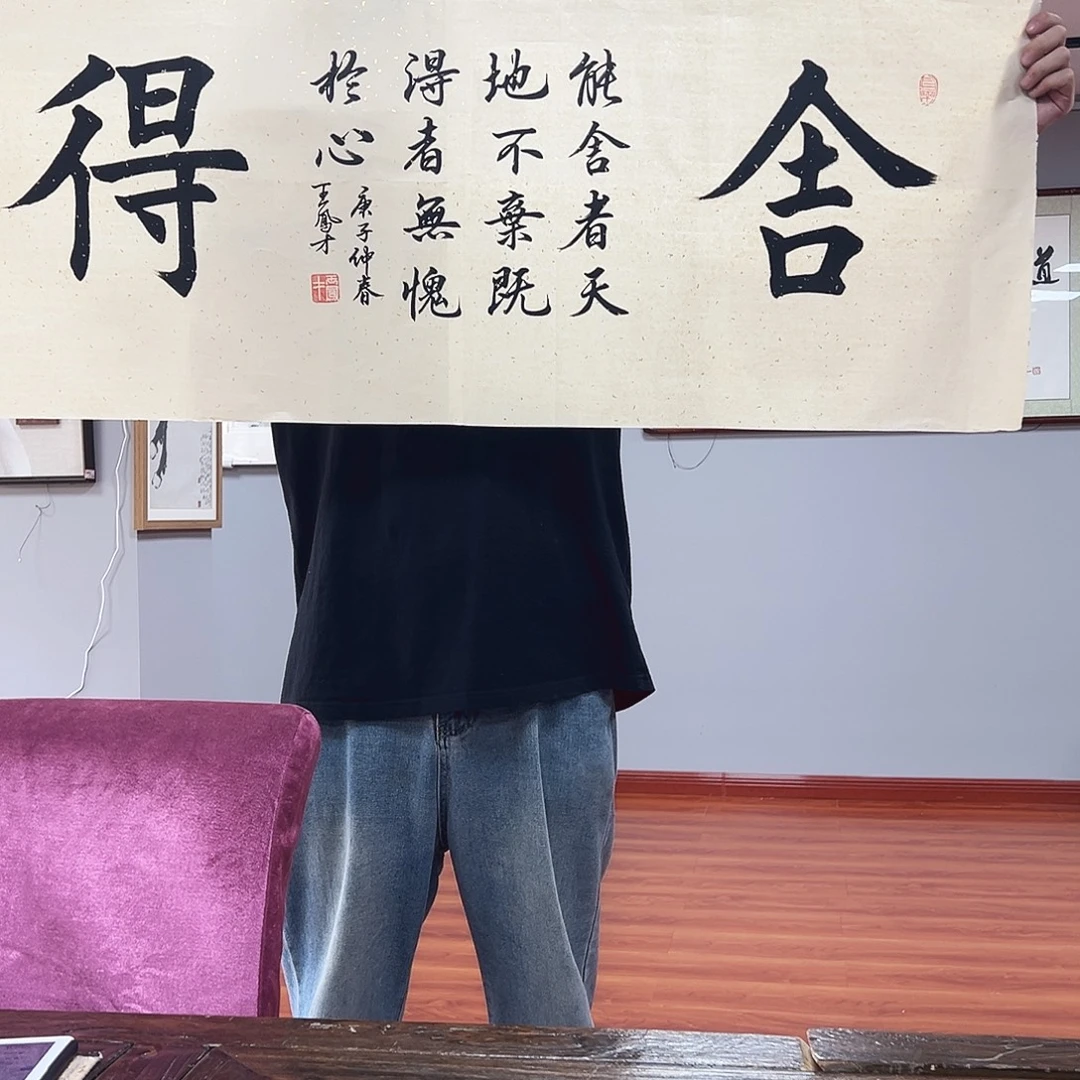 舍
能舍者天
地不棄既
得者無愧
於心
庚子仲春
王鳳才
得
道